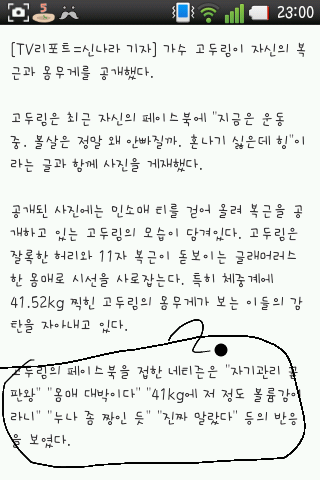 23:00
[TV리포트=신나라 기자] 가수 고두림이 자신의 복
근과 몸무게를 공개했다.
고두림은 최근 자신의 페이스북에 "지금은 운동
중. 볼살은 정말 왜 안빠질까. 혼나기 싫은데 힝"이
라는 글과 함께 사진을 게재했다.
공개된 사진에는 민소매 티를 걷어 올려 복근을 공
개하고 있는 고두림의 모습이 담겨있다. 고두림은
잘록한 허리와 11자 복근이 돋보이는 글래머러스
한 몸매로 시선을 사로잡는다. 특히 체중계에
41.52kg 찍힌 고두림의 몸무게가 보는 이들의 감
탄을 자아내고 있다.
고두림의 페이스북을 접한 네티즌은 "자기관리 끝
판왕" "몸매 대박이다" "41kg에 저 정도 볼륨감이
라니" "누나 좀 짱인 듯" "진짜 말랐다" 등의 반응
을 보였다.